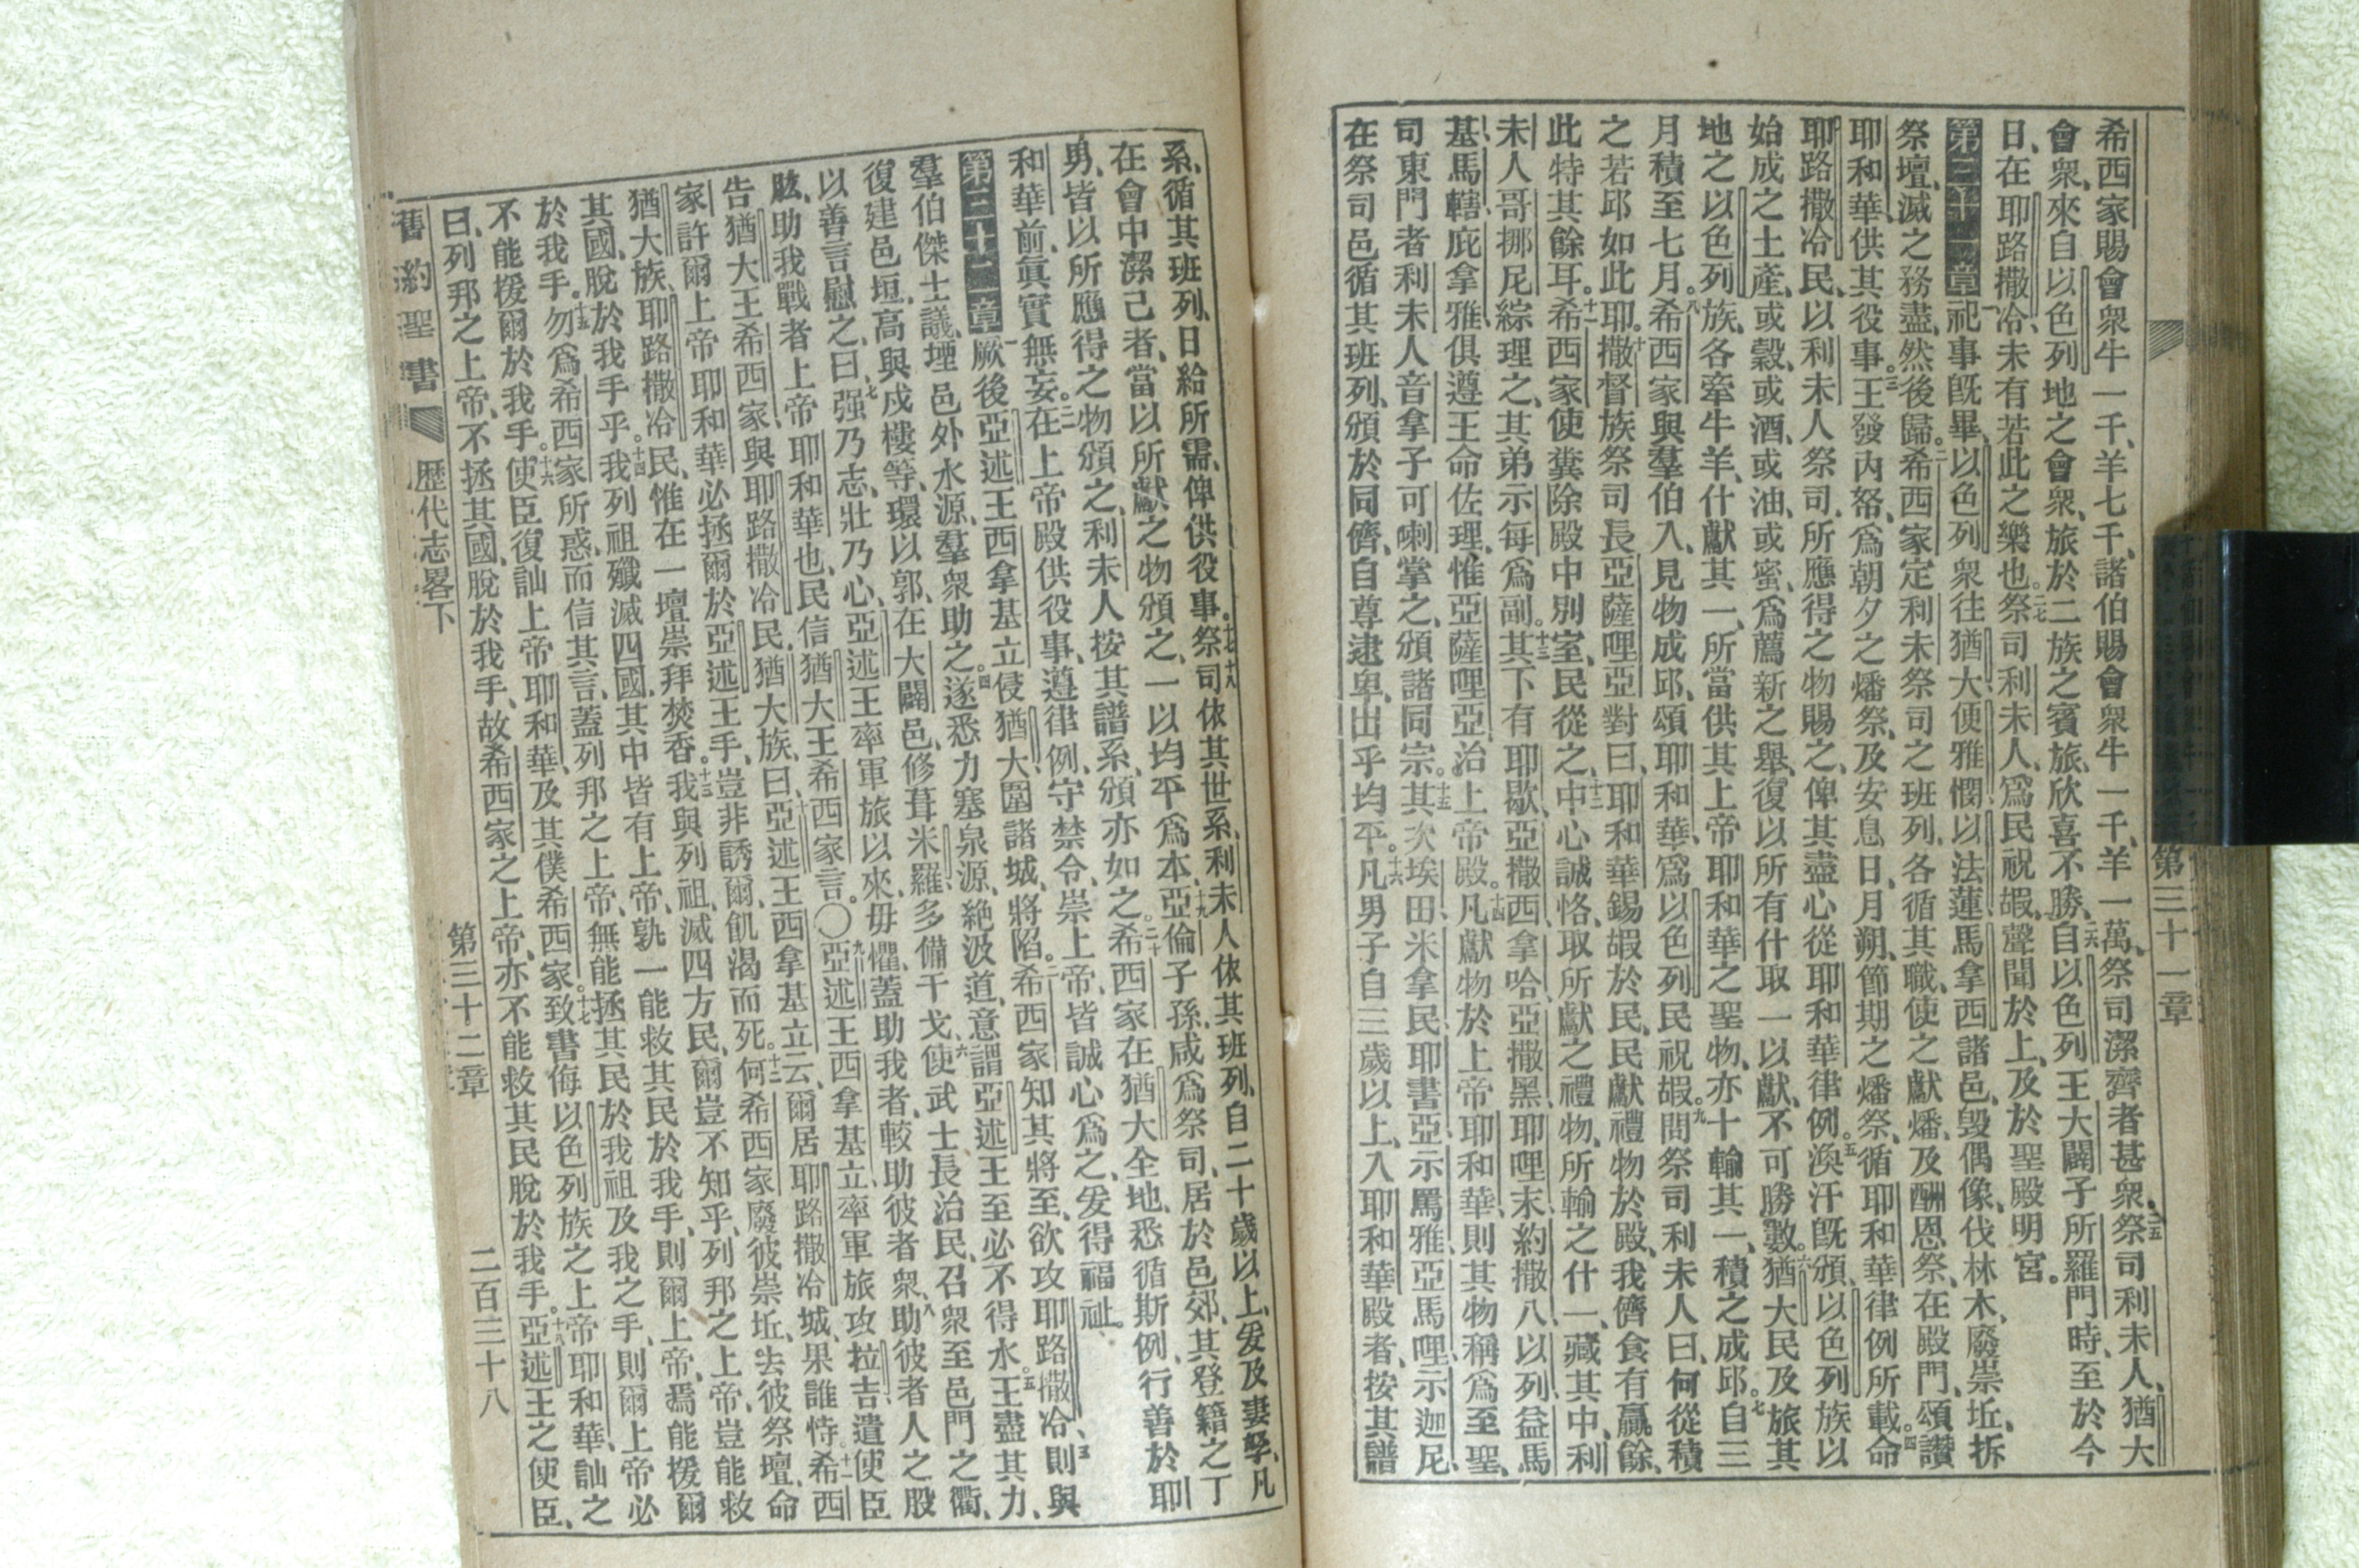 希西家賜會衆牛一千、羊七千、諸伯賜會衆牛一千、羊一萬、祭司潔齊者甚衆、二五祭司利未人、猶大
會衆、來自以色列地之會衆、旅於二族之賓旅、欣喜不勝、二六自以色列王大闢子所羅門時、至於今
日、在耶路撒冷、未有若此之樂也。二七祭司利未人、爲民祝嘏、聲聞於上、及於聖殿明宮。
第三十一章一祀事旣畢、以色列衆往猶大便雅憫以法蓮馬拿西諸邑、毁偶像、伐林木、廢崇坵、拆
祭壇、滅之務盡、然後歸。二希西家定利未祭司之班列、各循其職、使之獻燔、及酬恩祭、在殿門、頌讚
耶和華、供其役事。三王發內帑、爲朝夕之燔祭、及安息日、月朔、節期之燔祭、循耶和華律例所載。四命
耶路撒冷民、以利未人祭司、所應得之物賜之、俾其盡心從耶和華律例。五渙汗旣頒、以色列族以
始成之土產、或穀、或酒、或油、或蜜、爲薦新之舉、復以所有什取一以獻、不可勝數。六猶大民及旅其
地之以色列族、各牽牛羊、什獻其一、所當供其上帝耶和華之聖物、亦十輸其一、積之成邱。七自三
月積至七月。八希西家與羣伯入、見物成邱、頌耶和華、爲以色列民祝嘏。九問祭司利未人曰、何從積
之若邱如此耶。十撒督族祭司長亞薩哩亞對曰、耶和華錫嘏於民、民獻禮物於殿、我儕食有贏餘、
此特其餘耳。十一希西家使糞除殿中別室、民從之、十二中心誠恪、取所獻之禮物、所輸之什一、藏其中、利
未人哥挪尼綜理之、其弟示每爲副。十三其下有耶歇、亞撒西、拿哈、亞撒黑、耶哩末、約撒八、以列、益馬
基、馬轄、庇拿雅、俱遵王命佐理、惟亞薩哩亞治上帝殿。十四凡獻物於上帝耶和華、則其物稱爲至聖、
司東門者利未人音拿子可喇掌之、頒諸同宗。十五其次埃田、米拿民、耶書亞、示罵雅、亞馬哩、示迦尼、
在祭司邑循其班列、頒於同儕、自尊逮卑、出乎均平。十六凡男子自三歲以上、入耶和華殿者、按其譜
第三十一章
系、循其班列、日給所需、俾供役事。十七十八祭司依其世系、利未人依其班列、自二十歲以上、爰及妻孥、凡
在會中潔己者、當以所獻之物頒之、一以均平爲本、十九亞倫子孫、咸爲祭司、居於邑郊、其登籍之丁
男、皆以所應得之物頒之、利未人按其譜系、頒亦如之。二十希西家在猶大全地、悉循斯例、行善於耶
和華前、眞實無妄。二一在上帝殿供役事、遵律例、守禁令、崇上帝、皆誠心爲之、爰得福祉。
第三十二章一厥後亞述王西拿基立侵猶大、圍諸城、將陷。二希西家知其將至、欲攻耶路撒冷、三則與
羣伯傑士議、堙邑外水源、羣衆助之。四遂悉力塞泉源、絶汲道、意謂亞述王至必不得水。五王盡其力、
復建邑垣、高與戍樓等、環以郭、在大闢邑、修葺米羅、多備干戈、六使武士長治民、召衆至邑門之衢、
以善言慰之、曰、七强乃志、壯乃心、亞述王率軍旅以來、毋懼、蓋助我者、較助彼者衆、八助彼者人之股
肱、助我戰者上帝耶和華也、民信猶大王希西家言。〇九亞述王西拿基立、率軍旅攻拉吉、遣使臣
告猶大王希西家、與耶路撒冷民、猶大族、曰、十亞述王西拿基立云、爾居耶路撒冷城、果誰恃。十一希西
家許爾上帝耶和華必拯爾於亞述王手、豈非誘爾、飢渴而死。十二何希西家廢彼崇坵、去彼祭壇、命
猶大族、耶路撒冷民、惟在一壇崇拜焚香。十三我與列祖、滅四方民、爾豈不知乎、列邦之上帝、豈能救
其國、脫於我手乎。十四我列祖殲滅四國、其中皆有上帝、孰一能救其民於我手、則爾上帝、焉能援爾
於我手。十五勿爲希西家所惑、而信其言、蓋列邦之上帝、無能拯其民於我祖及我之手、則爾上帝必
不能援爾於我手。十六使臣復訕上帝耶和華、及其僕希西家。十七致書侮以色列族之上帝耶和華、訕之
曰、列邦之上帝、不拯其國、脫於我手、故希西家之上帝、亦不能救其民脫於我手。十八亞述王之使臣、
舊約聖書 歷代志畧下 第三十二章 二百三十八